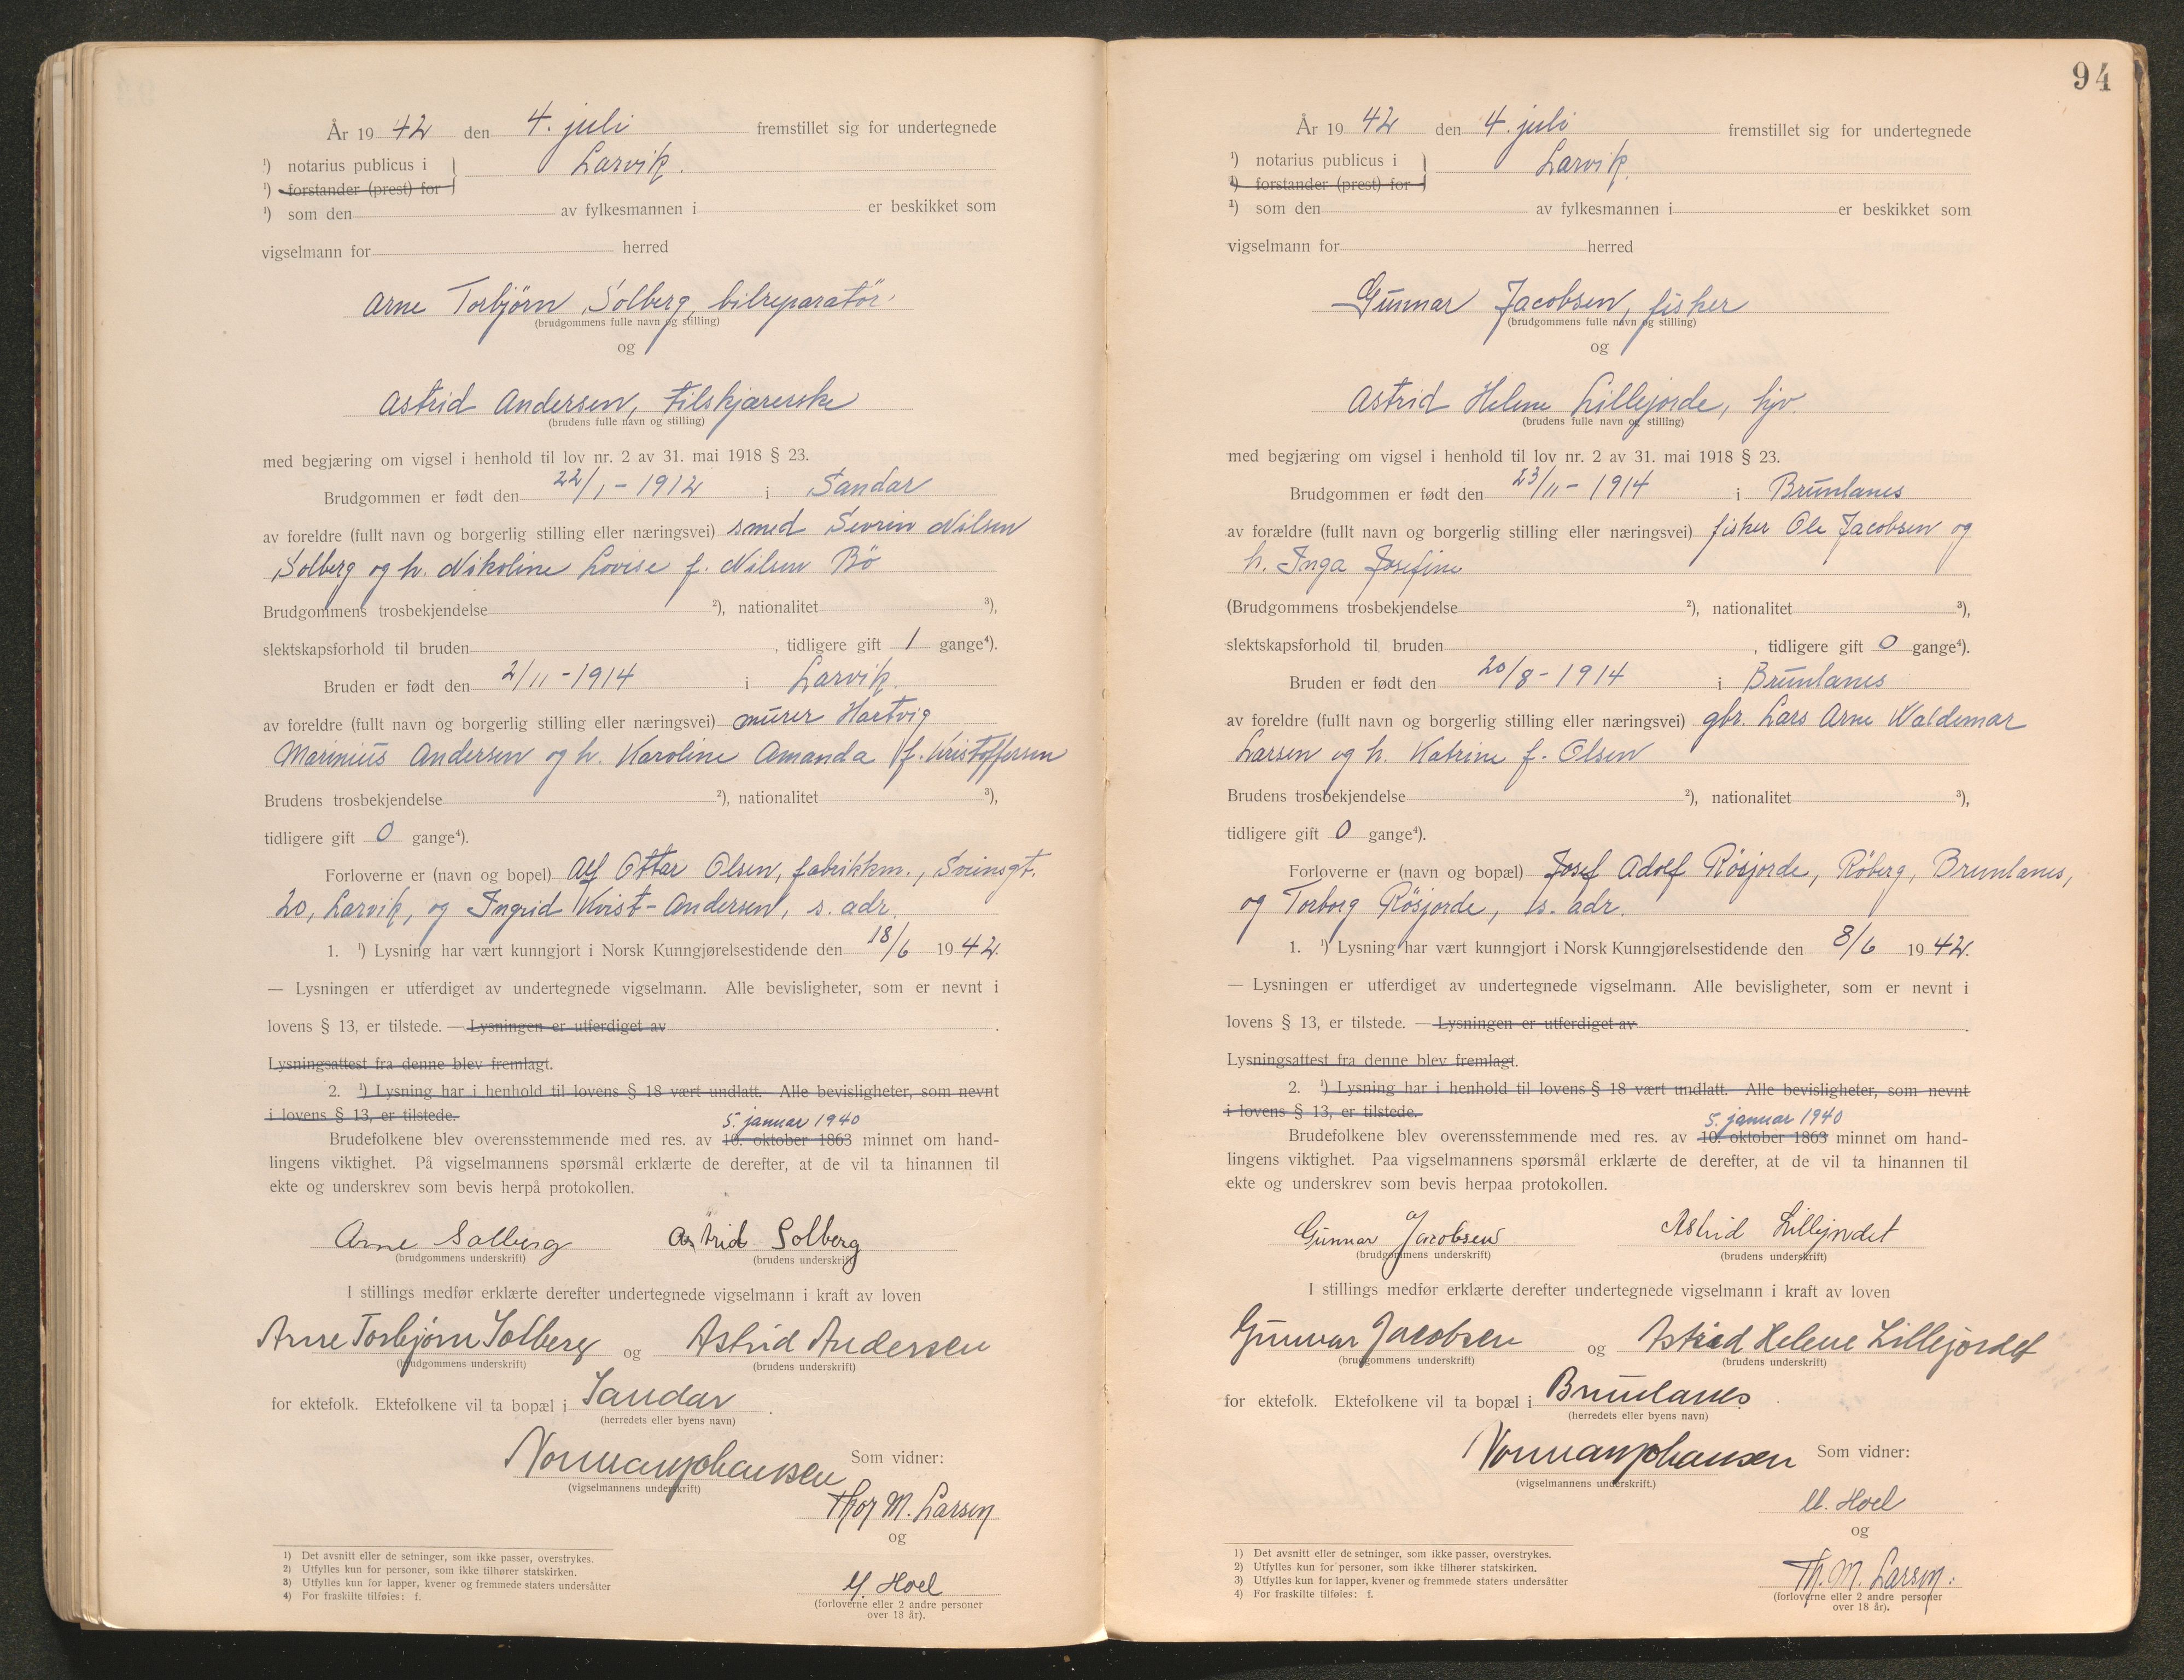 År 19 42 den 4. juli fremstillet sig for undertegnede
¹) notarius publicus i } Larvik.
¹) forstander (prest) for
¹) som den av fylkesmannen i er beskikket som
vigselmann for herred
Arne Torbjørn Solberg, bilreparatör.
(brudgommens fulle navn og stilling)
og
Astrid Andersen, tilskjærerske
(brudens fulle navn og stilling)
med begjæring om vigsel i henhold til lov nr. 2 av 31. mai 1918 § 23.
Brudgommen er født den 22/1 - 1912 i Sandar
av foreldre (fullt navn og borgerlig stilling eller næringsvei) smed Sevrin Nilsen
Solberg og h. Nikoline Lovise f. Nilsen Bö
Brudgommens trosbekjendelse ²), nationalitet ³),
slektskapsforhold til bruden , tidligere gift 1 gange⁴).
Bruden er født den 2/11 - 1914 i Larvik.
av foreldre (fullt navn og borgerlig stilling eller næringsvei) murer Hartvig
Marinius Andersen og h. Karoline Amanda f. Kristoffersen
Brudens trosbekjendelse ²), nationalitet ³),
tidligere gift 0 gange⁴).
Forloverne er (navn og bopel) Alf Ottar Olsen, fabrikkm., Sveinsgt.
20, Larvik, og Ingrid Kvist-Andersen, s. adr.
1. ¹) Lysning har vært kunngjort i Norsk Kunngjørelsestidende den 18/6 19 42.
— Lysningen er utferdiget av undertegnede vigselmann. Alle bevisligheter, som er nevnt i
lovens § 13, er tilstede. — Lysningen er utferdiget av .
Lysningsattest fra denne blev fremlagt.
2. ¹) Lysning har i henhold til lovens § 18 vært undlatt. Alle bevisligheter, som nevnt
i lovens § 13, er tilstede.
5. januar 1940
Brudefolkene blev overensstemmende med res. av 10. oktober 1863 minnet om hand-
lingens viktighet. På vigselmannens spørsmål erklærte de derefter, at de vil ta hinannen til
ekte og underskrev som bevis herpå protokollen.
Arne Solberg Astrid Solberg
(brudgommens underskrift) (brudens underskrift)
I stillings medfør erklærte derefter undertegnede vigselmann i kraft av loven
Arne Torbjørn Solberg og Astrid Andersen
(brudgommens underskrift) (brudens underskrift)
for ektefolk. Ektefolkene vil ta bopæl i Sandar .
(herredets eller byens navn)
Norman Johansen Som vidner:
(vigselmannens underskrift)
Thor M. Larsen
og
M. Hoel
(forloverne eller 2 andre personer
over 18 år).
1) Det avsnitt eller de setninger, som ikke passer, overstrykes.
2) Utfylles kun for personer, som ikke tilhører statskirken.
3) Utfylles kun for lapper, kvener og fremmede staters undersåtter
4) For fraskilte tilføies: f.
94
År 19 42 den 4. juli fremstillet sig for undertegnede
¹) notarius publicus i } Larvik.
¹) forstander (prest) for
¹) som den av fylkesmannen i er beskikket som
vigselmann for herred
Gunnar Jacobsen, fisker
(brudgommens fulle navn og stilling)
og
Astrid Helene Lillejorde, hjv.
(brudens fulle navn og stilling)
med begjæring om vigsel i henhold til lov nr. 2 av 31. mai 1918 § 23.
Brudgommen er født den 23/11 - 1914 i Brunlanes
av forældre (fullt navn og borgerlig stilling eller næringsvei) fisker Ole Jacobsen og
h. Inga Josefine
(Brudgommens trosbekjendelse ²), nationalitet ³),
slektskapsforhold til bruden , tidligere gift 0 gange⁴).
Bruden er født den 20/8 - 1914 i Brunlanes
av foreldre (fullt navn og borgerlig stilling eller næringsvei) gbr. Lars Arne Waldemar
Larsen og h. Katrine f. Olsen
Brudens trosbekjendelse ²), nationalitet ³),
tidligere gift 0 gange⁴).
Forloverne er (navn og bopæl) Josef Adolf Rösjorde, Röberg, Brunlanes,
og Torborg Rösjorde, s. adr.
1. ¹) Lysning har vært kunngjort i Norsk Kunngjørelsestidende den 8/6 19 42.
— Lysningen er utferdiget av undertegnede vigselmann. Alle bevisligheter, som er nevnt i
lovens § 13, er tilstede. — Lysningen er utferdiget av .
Lysningsattest fra denne blev fremlagt.
2. ¹) Lysning har i henhold til lovens § 18 vært undlatt. Alle bevisligheter, som nevnt
i lovens § 13, er tilstede.
5. januar 1940
Brudefolkene blev overensstemmende med res. av 10. oktober 1863 minnet om hand-
lingens viktighet. Paa vigselmannens spørsmål erklærte de derefter, at de vil ta hinannen til
ekte og underskrev som bevis herpaa protokollen.
Gunnar Jacobsen Astrid Lillejordet
(brudgommens underskrift) (brudens underskrift)
I stillings medfør erklærte derefter undertegnede vigselmann i kraft av loven
Gunnar Jacobsen og Astrid Helene Lillejordet
(brudgommens underskrift) (brudens underskrift)
for ektefolk. Ektefolkene vil ta bopæl i Brunlanes .
(herredets eller byens navn)
Norman Johansen Som vidner:
(vigselmannens underskrift.)
M. Hoel
og
Th. M. Larsen.
(forloverne eller 2 andre personer
over 18 år).
1) Det avsnitt eller de setninger, som ikke passer, overstrykes.
2) Utfylles kun for personer, som ikke tilhører statskirken.
3) Utfylles kun for lapper, kvener og fremmede staters undersåtter
4) For fraskilte tilføies: f.